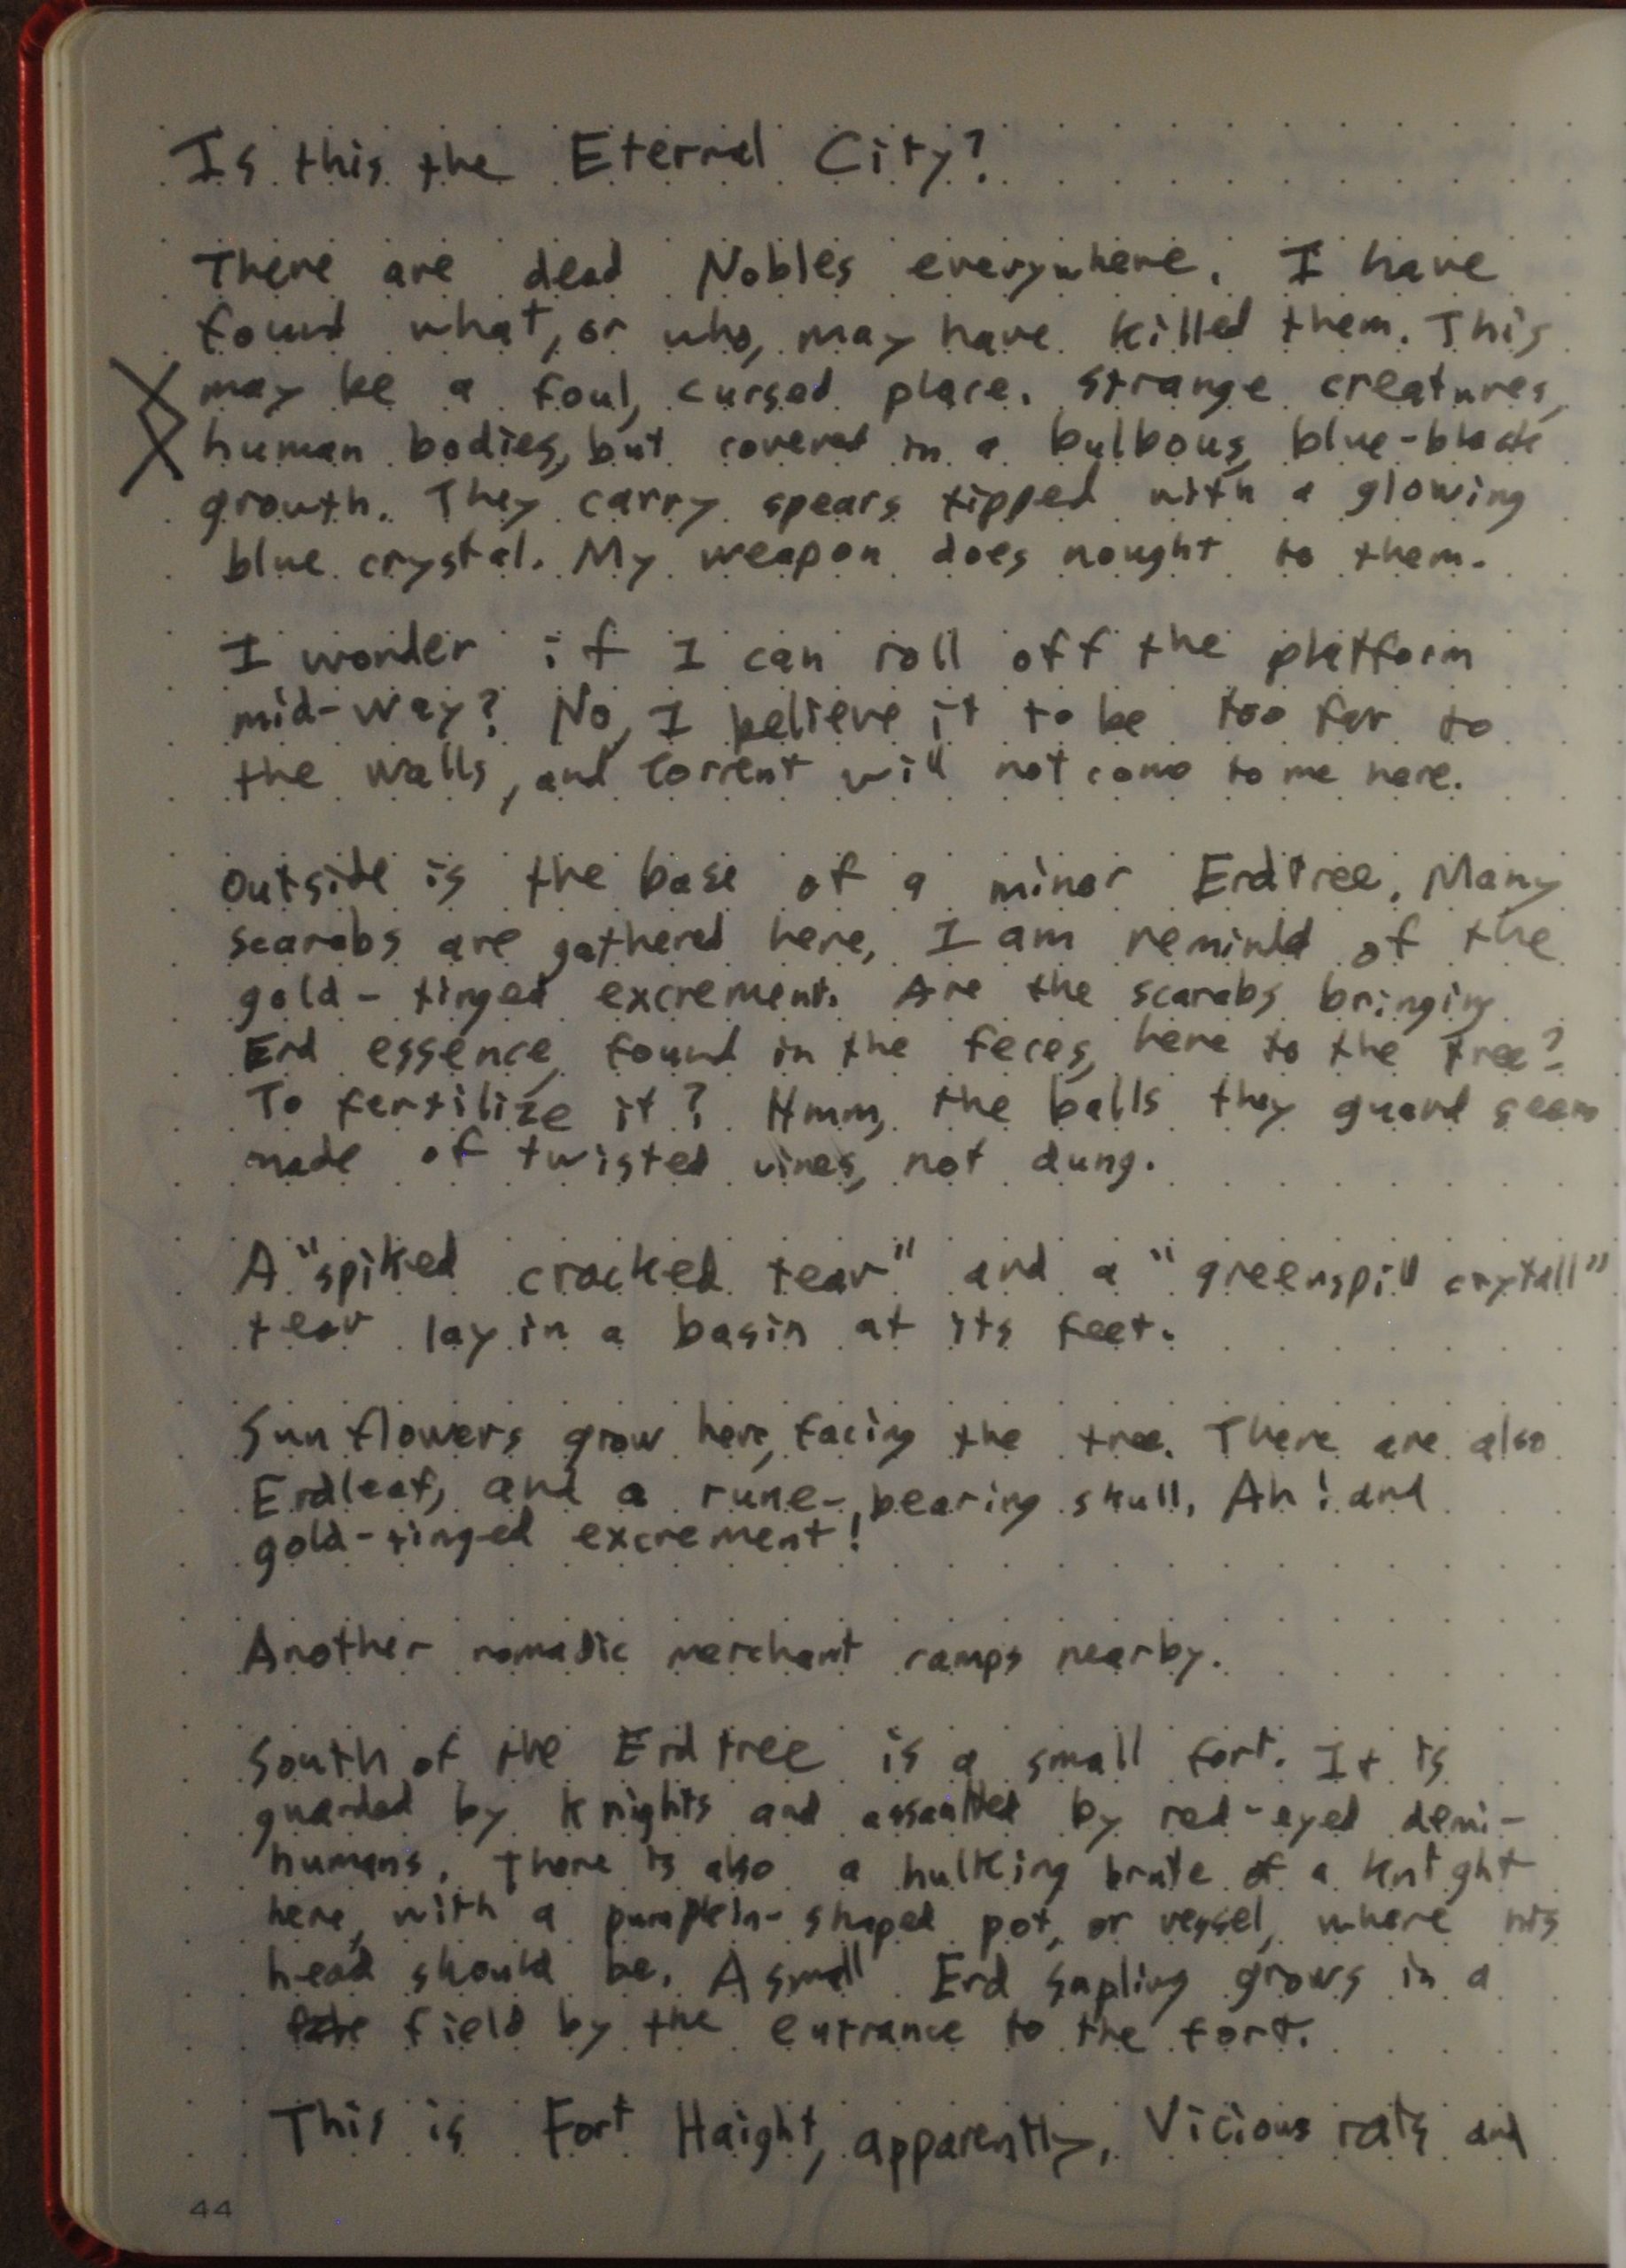 Is this the Eternal City?
There are dead Nobles everywhere. I have
found what, or who, may have killed them. This
may be a foul, cursed place. Strange creatures,
human bodies, but covered in a bulbous, blue-black
growth. They carry spears tipped with a glowing
blue crystal. My weapon does nought to them.
I wonder if I can roll off the platform
mid-way? No, I believe it to be too far to
the walls, and Torrent will not come to me here.
Outside is the base of a minor Erdtree. Many
scarabs are gathered here, I am reminded of the
gold-tinged excrement. Are the scarabs bringing
Erd essence, found in the feces, here to the tree?
To fertilize it? Hmm, the balls they guard seem
made of twisted vines, not dung.
A "spiked cracked tear" and a "greenspill crytall"
tear lay in a basin at its feet.
Sunflowers grow here, facing the tree. There are also
Erdleaf, and a rune-bearing skull. Ah! and
gold-tinged excrement!
Another nomadic merchant camps nearby.
South of the Erdtree is a small fort. It is
guarded by knights and assaulted by red-eyed demi-
humans. There is also a hulking brute of a knight
here, with a pumpkin-shaped pot, or vessel, where his
head should be. A small Erd sapling grows in a
field by the entrance to the fort.
This is Fort Haight, apparently. Vicious rats and
44